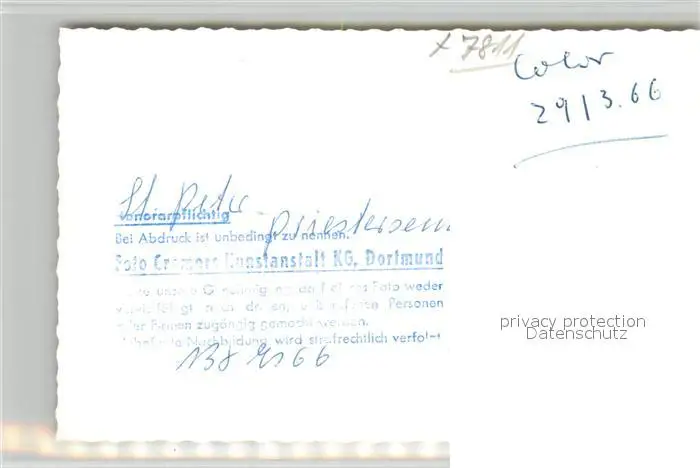 x 7811
Color
29/3.66
St. Peter
Honorarpflichtig
priestersem
Bei Abdruck ist unbedingt zu nennen:
Foto Cramers Kunstanstalt KG, Dortmund
Ohne unsere Genehmigung darf dieses Foto weder
vervielfältigt noch dritten Personen
oder Firmen zugängig gemacht werden.
Nachbildung wird strafrechtlich verfolgt
66
privacy protection
Datenschutz